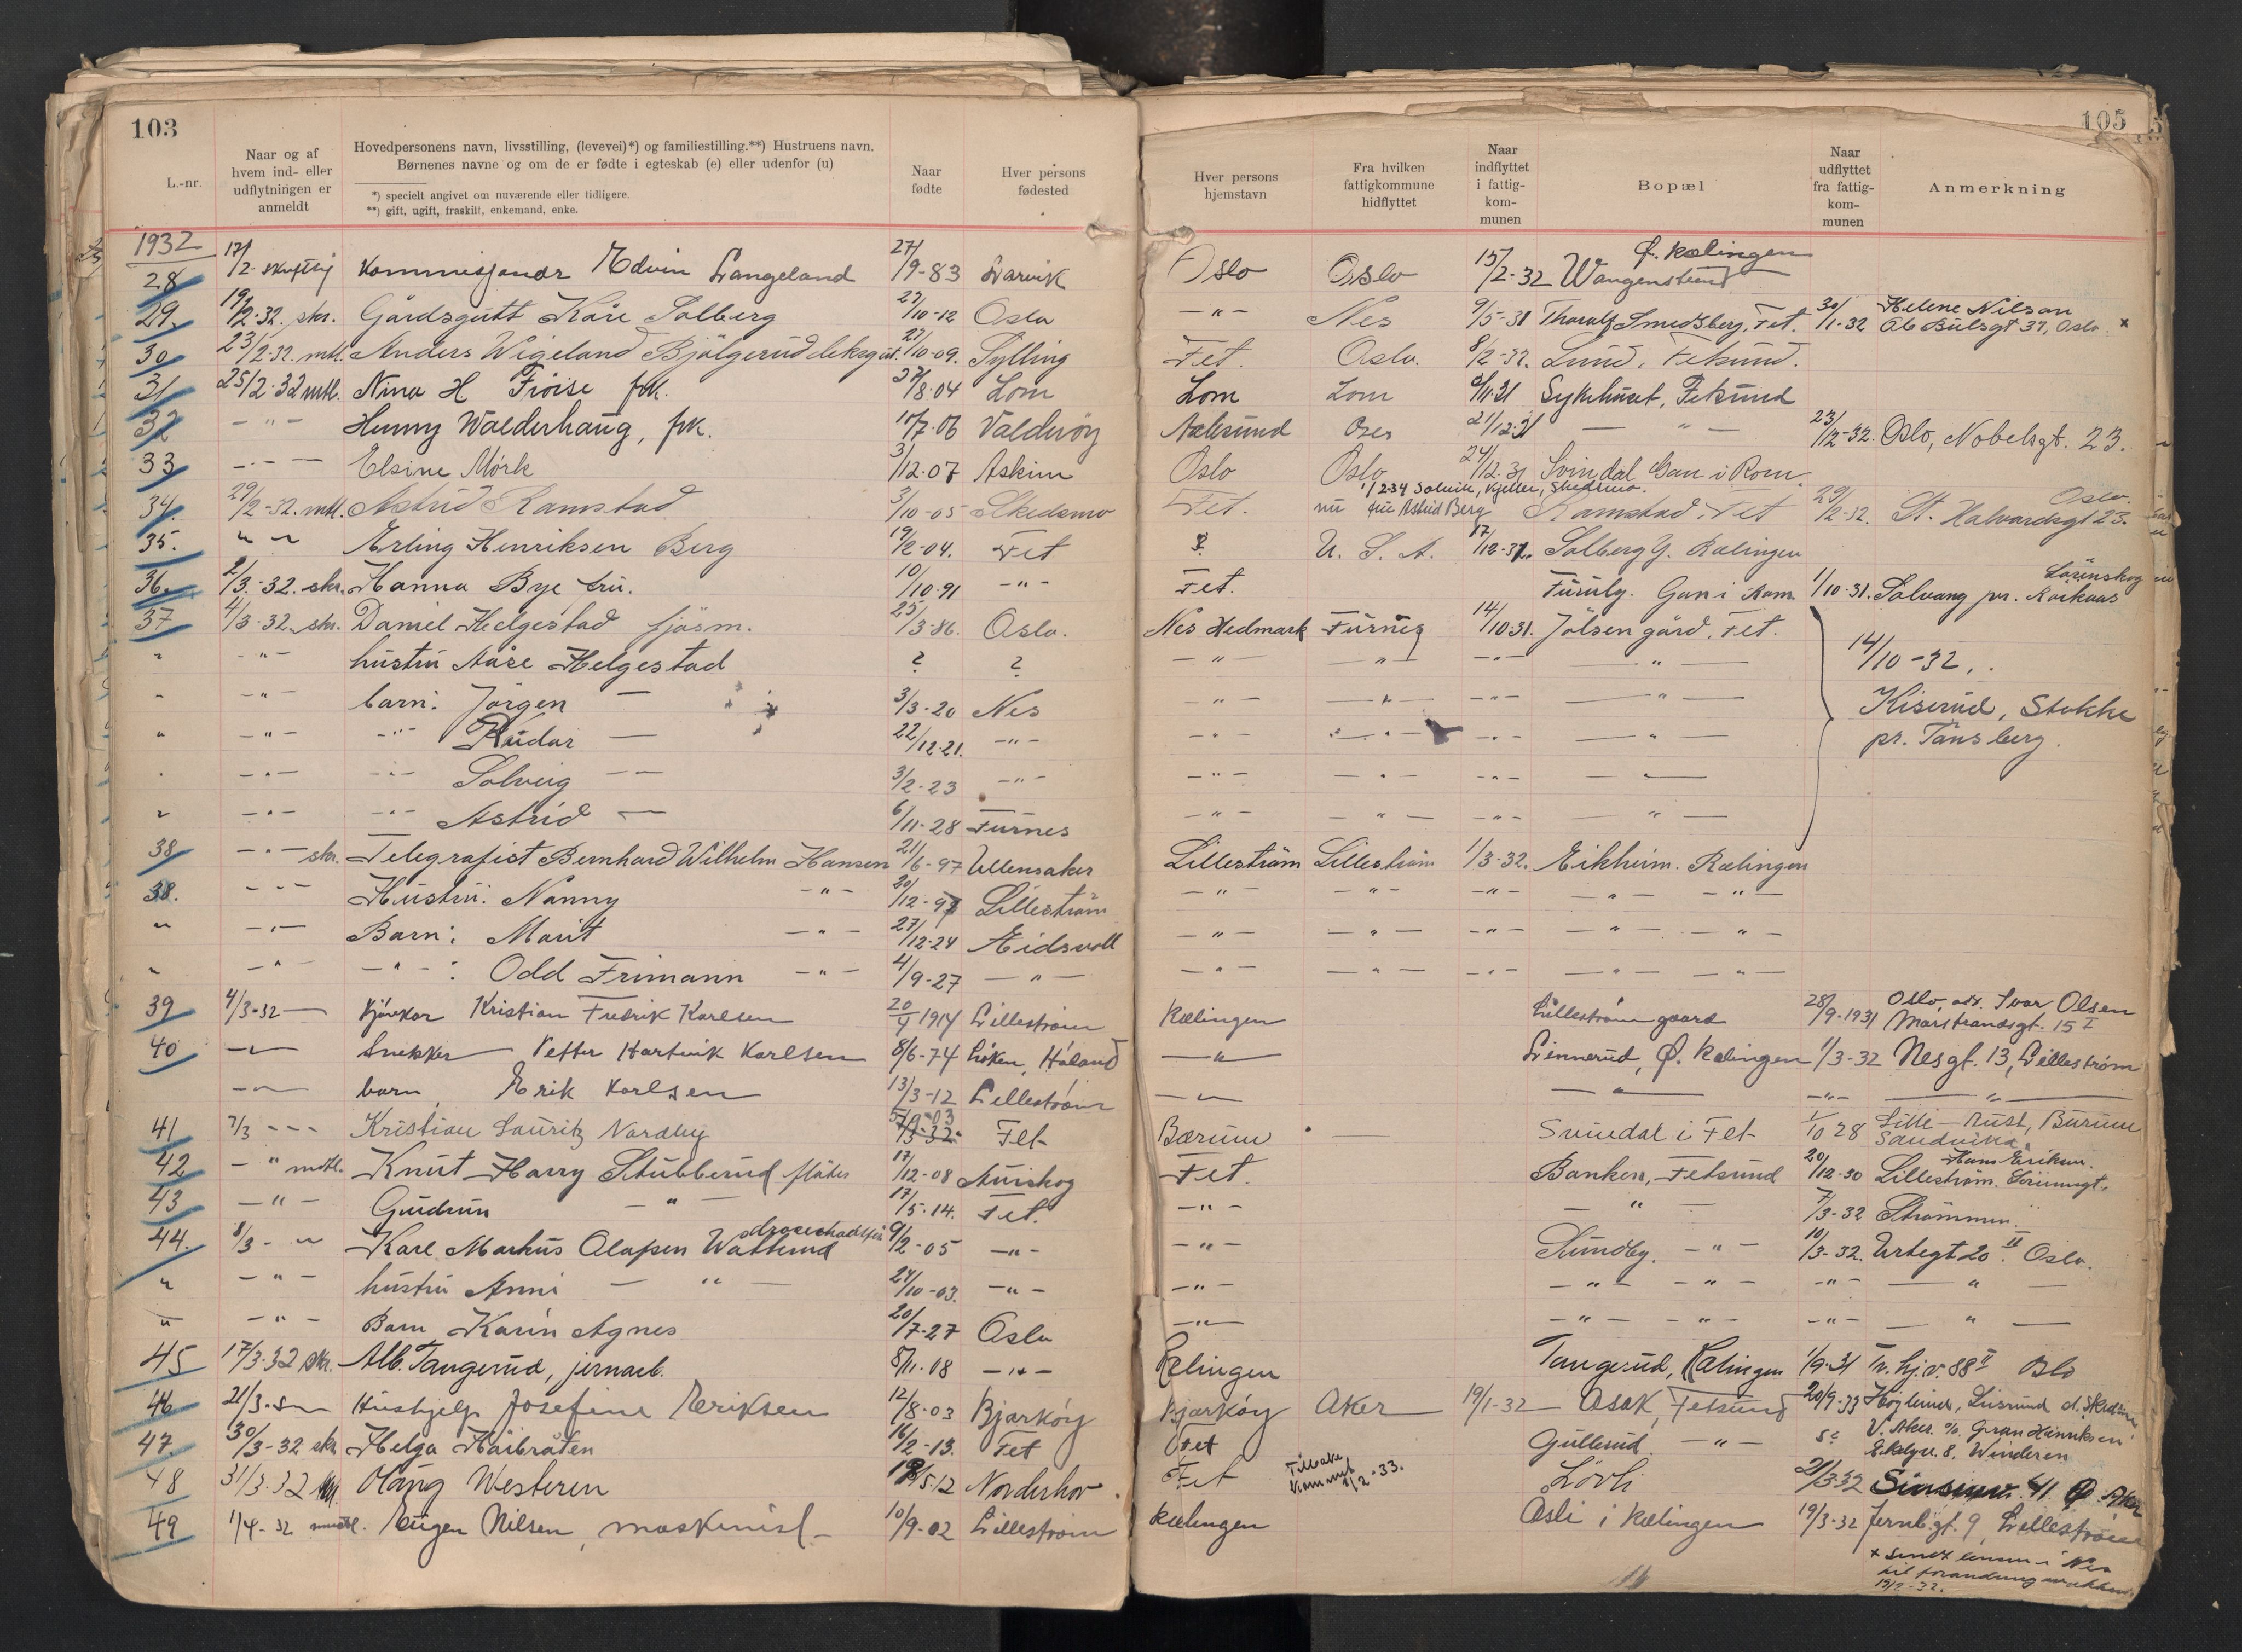 103
105
L.-nr.
Naar og af hvem ind- eller udflytningen er anmeldt
Hovedpersonens navn, livsstilling, (levevei)*) og familiestilling.**) Hustruens navn.
Børnenes navne og om de er fødte i egteskab (e) eller udenfor (u)
*) specielt angivet om nuværende eller tidligere.
**) gift, ugift, fraskilt, enkemand, enke.
Naar fødte
Hver persons fødested
Hver persons hjemstavn
Fra hvilken fattigkommune hidflyttet
Naar indflyttet i fattigkommunen
Bopæl
Naar udflyttet fra fattigkommunen
Anmerkning
1932
28 17/2- Kommisjonær Edvin Langeland 27/9-83 Larvik Oslo Oslo 15/2-32 Ø. Rælingen
29. 19/2-32. skr. Gårdsgutt Kåre Solberg 27/10-12 Oslo -"- Nes 9/5-31 Thoralf Smedsberg, Fet. 30/1-32 Helene Nilson Ole Bulsgt 37, Oslo. x
30 23/2-32. mtl. Anders Wigeland Bjølgerud 27/10-09. Sylling Fet. Oslo. 8/2-32. Lund, Fetsund.
31 25/2-32 mtl. Nina H Frøise frk. 27/8-04 Lom Lom Lom Sykehuset, Fetsund
32 -"- Henny Walderhaug, frk. 10/7-06 Valderøy Aalesund 21/12-31 -"- 23/12-32. Oslo, Nobelsgt. 23.
33 -"- Elsine Mørk 3/12-07 Askim Oslo Oslo 24/12-31 Svindal Gan i Rom.
1/2-34 Solvik, Kjeller, Skedsmo.
34. 29/2-32. mtl. Astrid Ramstad 3/10-05 Skedsmo Fet. nu Astrid Berg Ramstad, Fet 29/2-32. St. Halvardsgt 23. Oslo.
35. " " Erling Henriksen Berg 19/2-04. Fet ? U. S. A. 17/12-31. Solberg Y. Rælingen
36. 2/3-32. skr. Hanna Bye fru. 10/10-91 -"- Fet. Furuly. Gan i Rom. 1/10-31. Solvang pr. Lørenskog
37 4/3-32 skr. Daniel Helgestad fjøsm. 25/3-86. Oslo. Nes Hedmark Furnes 14/10-31. Jølsen gård, Fet.
" -"- hustru Aase Helgestad ? ? -"- -"- -"- -"- 14/10-32.
" -"- barn: Jørgen — 3/3-20 Nes -"- -"- -"- -"- Kiserud, Stokke
" -"- -"- Reidar — 22/12-21. -"- -"- -"- -"- -"- pr. Tønsberg.
" -"- -"- Solveig — 3/2-23 -"- -"- -"- -"- -"-
" -"- -"- Astrid — 6/11-28 Furnes -"- -"- -"- -"-
38 -"- skr. Telegrafist Bernhard Wilhelm Hansen 21/6-97 Ullensaker Lillestrøm Lillestrøm 1/3-32. Eikheim. Rælingen
38. -"- Hustru: Nanny -"- 20/12-97 Lillestrøm -"- -"- -"- -"- -"-
" -"- Barn: Marit -"- 27/12-24 Eidsvoll -"- -"- -"- -"- -"-
" -"- -"-: Odd Frimann -"- 4/9-27 -"- -"- -"- -"- -"- -"-
39 4/3-32 — Kristian Fredrik Karlsen 20/4 1914 Lillestrøm Rælingen Lillestrøm gaard 28/9-1931 Oslo, adr. Ivar Olsen Marstrandsgt. 15 I
40 -"- Snekker Petter Hartvik Karlsen 8/6-74 Løken, Høland -"- Linnerud, Ø. Rælingen 1/3-32 Nesgt. 13, Lillestrøm
-"- barn, Erik Karlsen 13/3-12 Lillestrøm -"- -"- -"- -"-
41 7/3 -"- Kristian Lauritz Nordby 5/9-03 Fet Bærum Svindal i Fet 1/10 28 Lille-Rust, Bærum Sandvika.
42 -"- mdtl. Knut Harry Stubberud fløter 17/12-08 Aurskog Fet. Banken, Fetsund 20/12-30 Hans Eriksen. Lillestrøm.
43 -"- Gudrun -"- 17/5-14. Fet. -"- -"- 7/3-32 Strømmen.
44. 8/3- " Karl Markus Olafsen Watterud 9/2-05 -"- -"- Sundby. -"- 10/3-32. Urtegt 20 II. Oslo.
" -"- hustru Anni -"- 24/10-03. -"- -"- -"- -"- -"- -"-
" -"- Barn Karin Agnes 20/7-27 Oslo -"- -"- -"- -"- -"-
45 17/3-32 skr. Alb. Tangerud, jernarb. 5/11-08 -"- Rælingen Tangerud, Rælingen 1/9-31 Tr. hj.v. 88 II Oslo
46 21/3- Hushjelp Josefine Eriksen 12/8-03 Bjarkøy Bjarkøy Aker 19/1-32 Asak, Fetsund 20/9-33
47. 30/3-32 skr. Helga Haibråten 16/2-13. Fet Fet Gullerud -"- V. Aker. Winderen
48 31/3-32 Olaug Westeren Norderhov Fet Tilbake kommet 1/2-33. Løvli 21/3-32
49 1/4-32 mundtl. Eugen Nilsen, maskinist 10/9-02 Lillestrøm Rælingen Åsli i Rælingen 19/3-32 Jernb.gt. 9, Lillestrøm